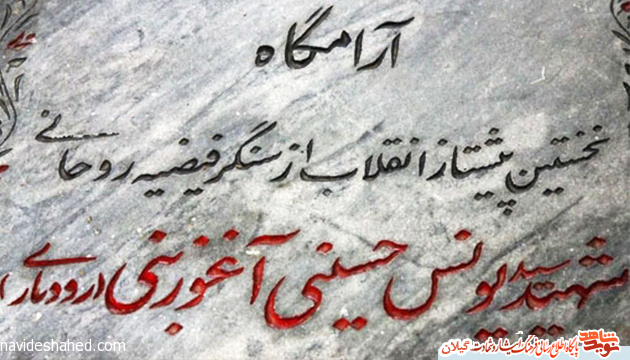 آرامگاه
نخستین پیشتاز انقلاب از سنگر فیضیه روحانی
شهید سید یونس حسینی آغوزبنی (رودباری)
navideshahed.com
نوید شاهد
پایگاه اطلاع رسانی فرهنگ ایثار و شهادت گیلان